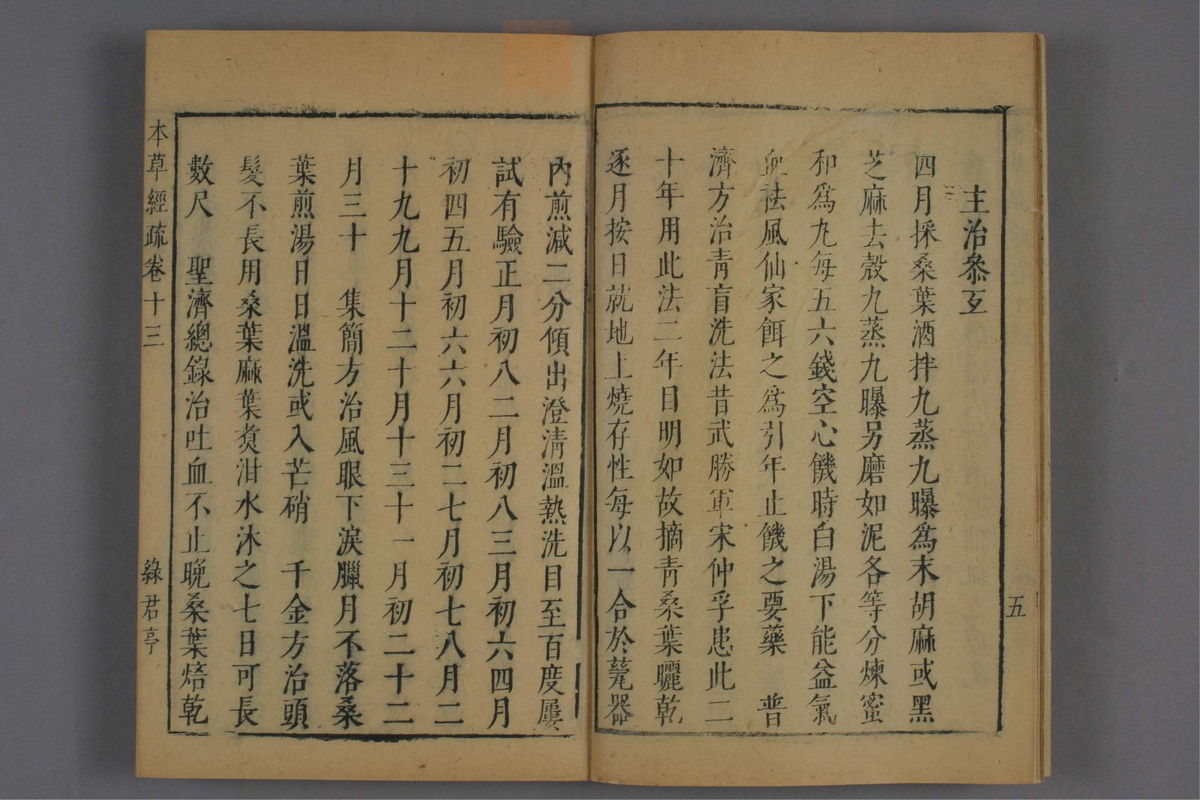 五
主治參互
四月採桑葉酒拌九蒸九曝爲末胡麻或黑
芝麻去殼九蒸九曝另磨如泥各等分煉蜜
和爲丸每五六錢空心饑時白湯下能益氣
血祛風仙家餌之爲引年止饑之要藥　普
濟方治青盲洗法昔武勝軍宋仲孚患此二
十年用此法二年目明如故摘青桑葉曬乾
逐月按日就地上燒存性每以一合於甆器
內煎減二分傾出澄清溫熱洗目至百度屢
試有驗正月初八二月初八三月初六四月
初四五月初六六月初二七月初七八月二
十九月十二十月十三十一月初二十二
月三十　集簡方治風眼下淚臘月不落桑
葉煎湯日日溫洗或入芒硝　千金方治頭
髮不長用桑葉麻葉煑泔水沐之七日可長
數尺　聖濟總錄治吐血不止晚桑葉焙乾
本草經疏卷十三
綠君亭